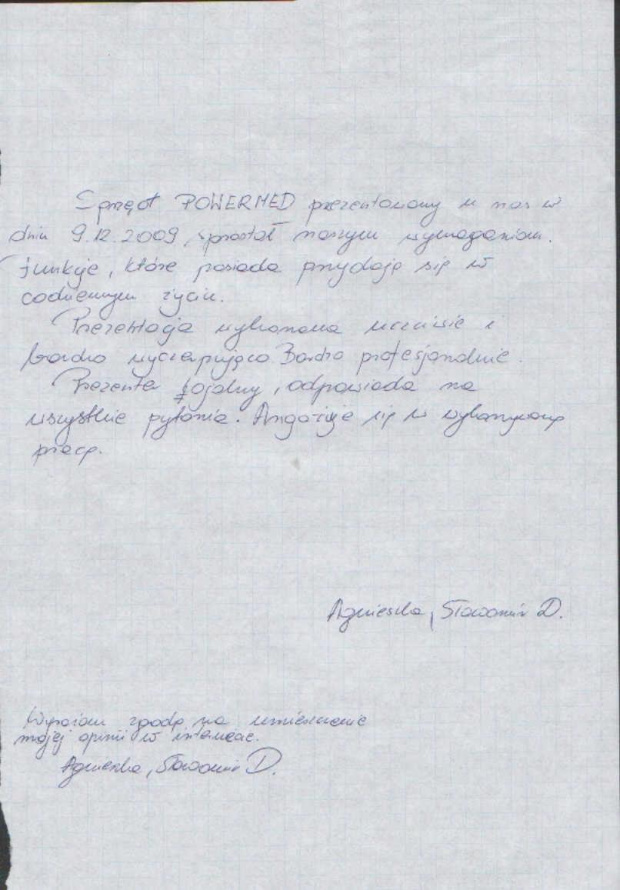 Sprzęt POWERMED prezentowany u nas w
dniu 9.12.2009, sprostał naszym wymaganiom.
funkcje, które posiada przydają się w
codziennym życiu.
Prezentacja wykonana uczciwie i
bardzo wyczerpująco. Bardzo profesjonalnie.
Prezenter lojalny, odpowiada na
wszystkie pytania. Angażuje się w wykonywaną
pracę.
Agnieszka, Sławomir D.
Wyrażam zgodę na umieszczenie
mojej opinii w internecie.
Agnieszka, Sławomir D.